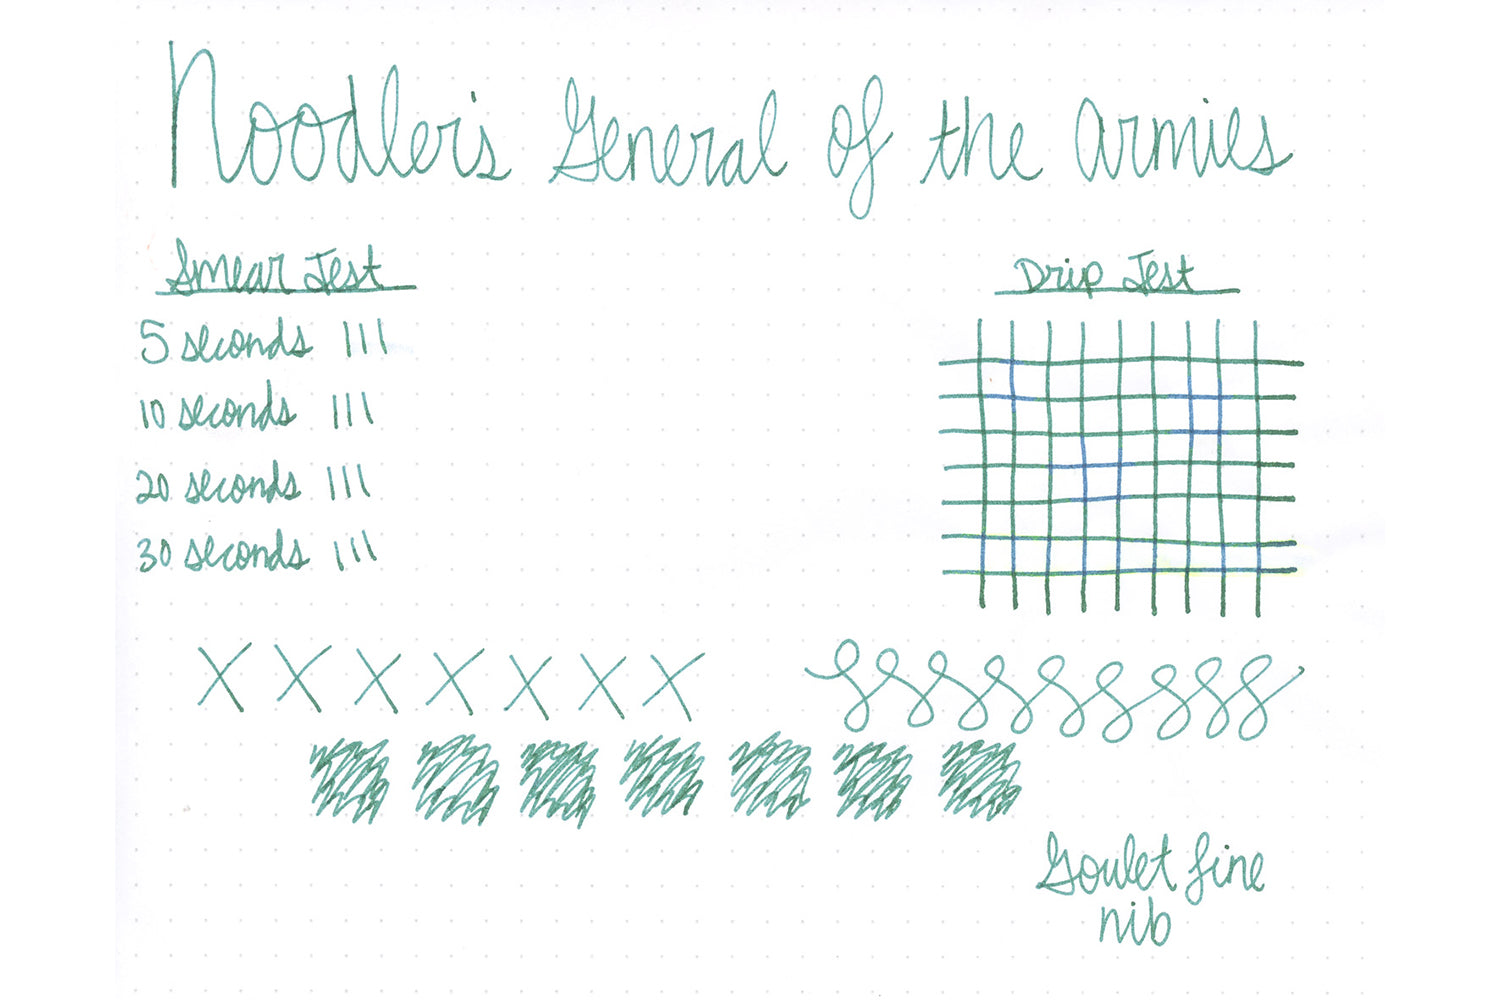 Noodler's General of the Armies
Smear Test
Drip Test
5 seconds
10 seconds
20 seconds
30 seconds
Goulet fine
nib